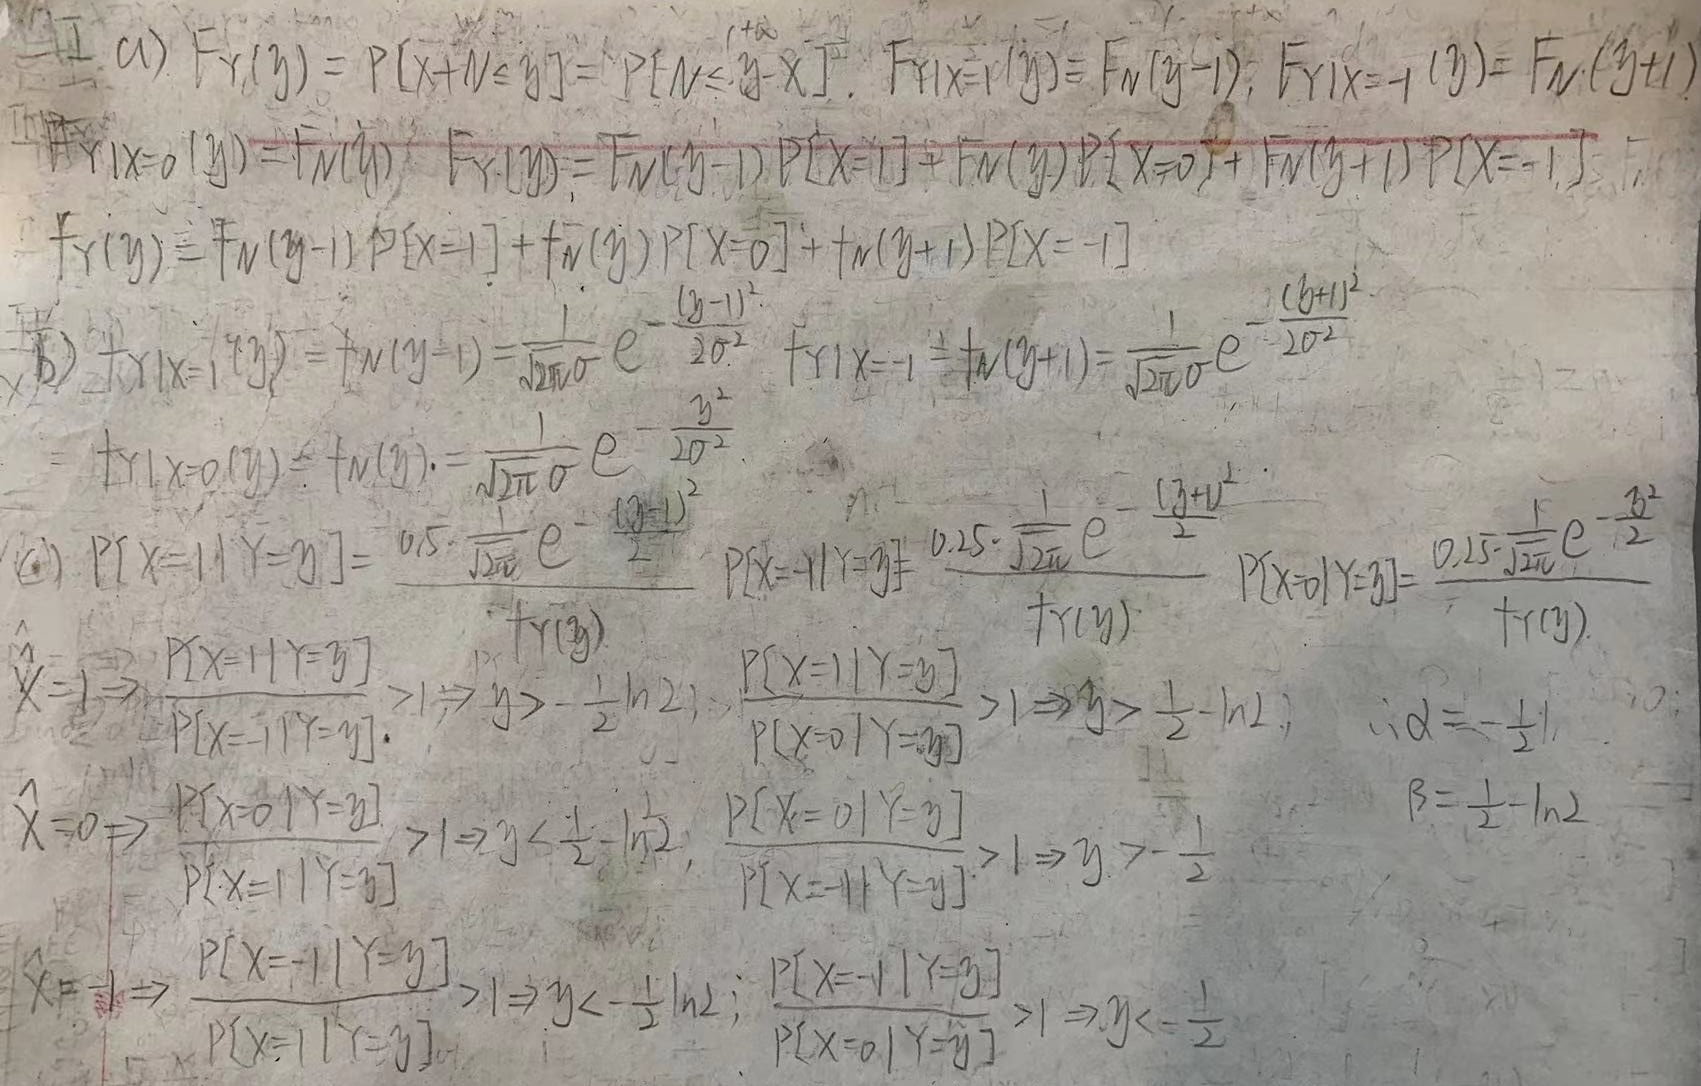 II a) F_Y(y) = P[X+N≤y] = P[N≤y-X]. F_{Y|X=1}(y) = F_N(y-1); F_{Y|X=-1}(y) = F_N(y+1)
F_{Y|X=0}(y) = F_N(y) F_Y(y) = F_N(y-1)P[X=1] + F_N(y)P[X=0] + F_N(y+1)P[X=-1]
f_Y(y) = f_N(y-1)P[X=1] + f_N(y)P[X=0] + f_N(y+1)P[X=-1]
b) f_{Y|X=1}(y) = f_N(y-1) = \frac{1}{\sqrt{2π}σ} e^{-\frac{(y-1)^2}{2σ^2}} f_{Y|X=-1} = f_N(y+1) = \frac{1}{\sqrt{2π}σ} e^{-\frac{(y+1)^2}{2σ^2}}
= f_{Y|X=0}(y) = f_N(y) = \frac{1}{\sqrt{2π}σ} e^{-\frac{y^2}{2σ^2}}
c) P[X=1|Y=y] = \frac{0.5·\frac{1}{\sqrt{2π}} e^{-\frac{(y-1)^2}{2}}}{f_Y(y)} P[X=-1|Y=y] = \frac{0.25·\frac{1}{\sqrt{2π}} e^{-\frac{(y+1)^2}{2}}}{f_Y(y)} P[X=0|Y=y] = \frac{0.25·\frac{1}{\sqrt{2π}} e^{-\frac{y^2}{2}}}{f_Y(y)}
\hat{X}=1 ⇒ \frac{P[X=1|Y=y]}{P[X=-1|Y=y]} >1 ⇒ y > -\frac{1}{2}ln2; \frac{P[X=1|Y=y]}{P[X=0|Y=y]} >1 ⇒ y > \frac{1}{2}-ln2; ∴ α = -\frac{1}{2}
\hat{X}=0 ⇒ \frac{P[X=0|Y=y]}{P[X=1|Y=y]} >1 ⇒ y < \frac{1}{2}-ln2; \frac{P[X=0|Y=y]}{P[X=-1|Y=y]} >1 ⇒ y > -\frac{1}{2} β = \frac{1}{2}-ln2
\hat{X}=-1 ⇒ \frac{P[X=-1|Y=y]}{P[X=1|Y=y]} >1 ⇒ y < -\frac{1}{2}ln2; \frac{P[X=-1|Y=y]}{P[X=0|Y=y]} >1 ⇒ y < -\frac{1}{2}